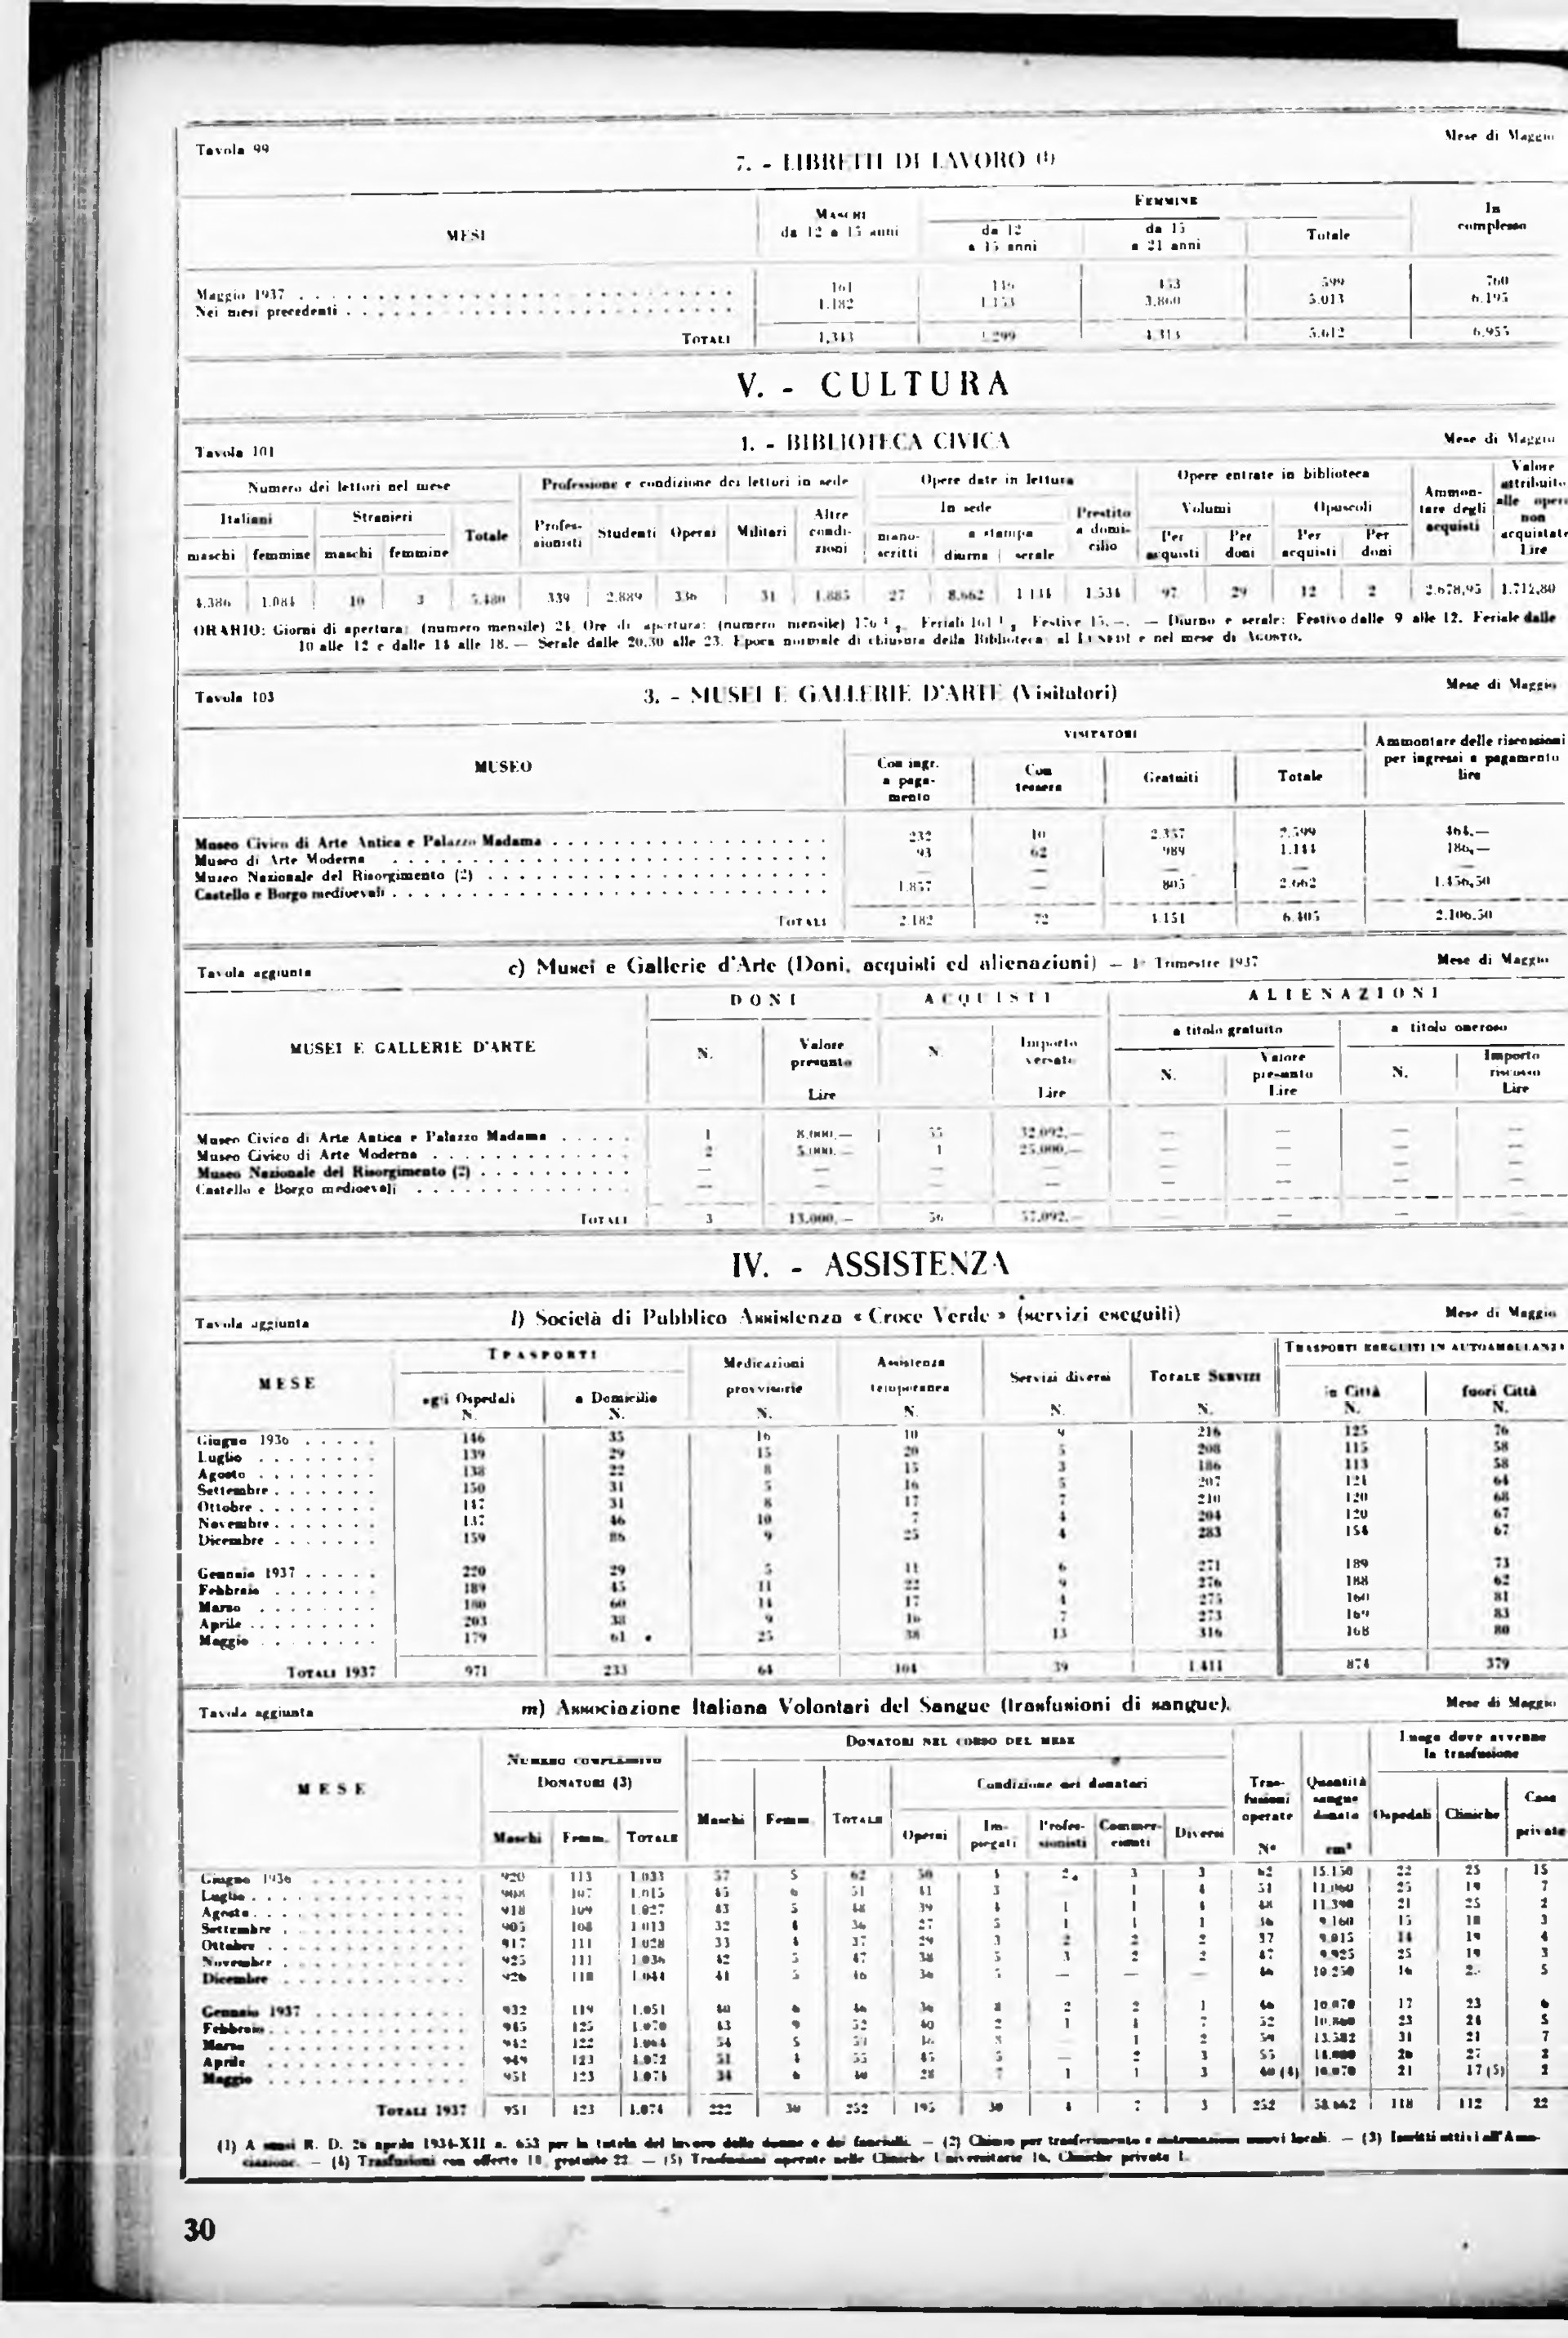 Tavola 99
Mese di Maggio
7. - LIBRETTI DI LAVORO (1)
MESI
MASCHI da 12 a 15 anni
FEMMINE
da 12 a 15 anni
da 15 a 21 anni
Totale
In complesso
Maggio 1937 161 146 453 599 760
Nei mesi precedenti 1.182 1.153 3.860 5.013 6.195
TOTALI 1.343 1.299 4.313 5.612 6.955
V. - CULTURA
Tavola 101
1. - BIBLIOTECA CIVICA
Mese di Maggio
Numero dei lettori nel mese
Professione e condizione dei lettori in sede
Opere date in lettura
Opere entrate in biblioteca
Ammontare degli acquisti
Valore attribuito alle opere non acquistate Lire
Italiani
Stranieri
Totale
Professionisti
Studenti
Operai
Militari
Altre condizioni
In sede
Prestito a domicilio
Volumi
Opuscoli
maschi femmine maschi femmine
manoscritti
a stampa
diurna serale
Per acquisti
Per doni
Per acquisti
Per doni
4.386 1.084 10 3 5.480 339 2.889 336 31 1.885 27 8.662 1.534 97 29 12 2 2.678,95 1.712,80
ORARIO: Giorni di apertura: (numero mensile) 24. Ore di apertura: (numero mensile) 176 ½. Feriali 161 ½. Festive 15,—. — Diurno e serale: Festivo dalle 9 alle 12. Feriale dalle
10 alle 12 e dalle 14 alle 18. — Serale dalle 20,30 alle 23. Epoca normale di chiusura della Biblioteca: al LUNEDÌ e nel mese di AGOSTO.
Tavola 103
3. - MUSEI E GALLERIE D'ARTE (Visitatori)
Mese di Maggio
MUSEO
VISITATORI
Con ingr. a pagamento
Con tessera
Gratuiti
Totale
Ammontare delle riscossioni per ingressi a pagamento lire
Museo Civico di Arte Antica e Palazzo Madama 232 10 2.357 2.599 464,—
Museo di Arte Moderna 93 62 989 1.144 186,—
Museo Nazionale del Risorgimento (2) — — — — —
Castello e Borgo medioevali 1.857 — 805 2.662 1.456,50
TOTALI 2.182 72 4.151 6.405 2.106,50
Tavola aggiunta
c) Musei e Gallerie d'Arte (Doni, acquisti ed alienazioni) — 1° Trimestre 1937
Mese di Maggio
MUSEI E GALLERIE D'ARTE
DONI
ACQUISTI
ALIENAZIONI
a titolo gratuito
a titolo oneroso
N.
Valore presunto Lire
N.
Importo versato Lire
N.
Valore presunto Lire
N.
Importo riscosso Lire
Museo Civico di Arte Antica e Palazzo Madama 1 8.000,— 55 32.092,— — — — —
Museo Civico di Arte Moderna 2 5.000,— 1 25.000,— — — — —
Museo Nazionale del Risorgimento (2) — — — — — — — —
Castello e Borgo medioevali — — — — — — — —
TOTALI 3 13.000,— 56 57.092,— — — — —
IV. - ASSISTENZA
Tavola aggiunta
l) Società di Pubblico Assistenza « Croce Verde » (servizi eseguiti)
Mese di Maggio
MESE
TRASPORTI
agli Ospedali N.
a Domicilio N.
Medicazioni provvisorie N.
Assistenza temporanea N.
Servizi diversi N.
TOTALE SERVIZI N.
TRASPORTI ESEGUITI IN AUTOAMBULANZA
in Città N.
fuori Città N.
Giugno 1936 146 35 16 10 9 216 125 76
Luglio 139 29 15 20 5 208 115 58
Agosto 138 22 8 15 3 186 113 58
Settembre 150 31 5 16 5 207 121 64
Ottobre 147 31 8 17 7 210 120 68
Novembre 137 46 10 7 4 204 120 67
Dicembre 159 86 9 25 4 283 154 67
Gennaio 1937 220 29 5 11 6 271 189 73
Febbraio 189 45 11 22 9 276 188 62
Marzo 180 60 14 17 4 275 160 81
Aprile 203 38 9 16 7 273 169 83
Maggio 179 61 25 38 13 316 168 80
TOTALI 1937 971 233 64 104 39 1.411 874 379
Tavola aggiunta
m) Associazione Italiana Volontari del Sangue (trasfusioni di sangue).
Mese di Maggio
MESE
NUMERO COMPLESSIVO DONATORI (3)
DONATORI NEL CORSO DEL MESE
Condizione dei donatori
Trasfusioni operate N°
Quantità sangue donato cm³
Luogo dove avvenne la trasfusione
Maschi Femm. TOTALE
Maschi Femm. TOTALE
Operai Impiegati Professionisti Commercianti Diversi
Ospedali Cliniche Case private
Giugno 1936 920 113 1.033 57 5 62 50 4 2 3 3 62 15.150 22 25 15
Luglio 908 107 1.015 45 6 51 41 3 1 4 51 11.060 25 19 7
Agosto 918 109 1.027 43 5 48 39 4 1 1 4 48 11.390 21 25 2
Settembre 905 108 1.013 32 4 36 27 5 1 1 1 36 9.160 15 18 3
Ottobre 917 111 1.028 33 4 37 29 3 2 2 2 37 9.015 14 19 4
Novembre 925 111 1.036 42 5 47 38 5 3 2 2 47 9.925 25 19 3
Dicembre 926 118 1.044 41 5 46 36 5 — — — 46 10.250 16 5
Gennaio 1937 932 119 1.051 40 6 46 36 8 2 2 1 46 10.070 17 23 6
Febbraio 945 125 1.070 43 9 52 40 2 1 4 7 52 10.860 23 24 5
Marzo 942 122 1.064 54 5 59 1 2 59 13.582 31 21 7
Aprile 949 123 1.072 51 4 55 45 5 — 2 3 55 26 27 2
Maggio 951 123 1.074 34 6 40 28 7 1 1 3 40 (4) 10.070 21 17 (5) 2
TOTALI 1937 951 123 1.074 222 30 252 195 30 4 7 3 252 58.662 118 112 22
(1) A sensi R. D. 26 aprile 1934-XII n. 653 per la tutela del lavoro delle donne e dei fanciulli. — (2) Chiuso per trasferimento e sistemazione nuovi locali. — (3) Iscritti attivi all'Asso-
ciazione. — (4) Trasfusioni con offerta 18, gratuite 22. — (5) Trasfusioni operate nelle Cliniche Universitarie 16, Cliniche private 1.
30